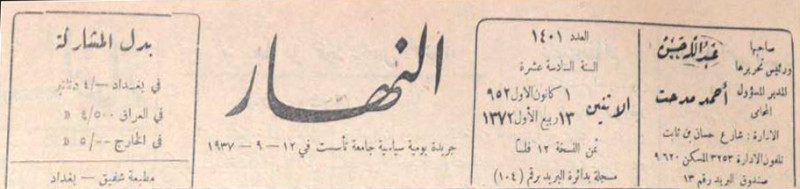 صاحبها
ورئيس تحريرها
عبد الله حسن
المدير المسؤول
المحامي
أحمد مدحت
الادارة : شارع حسان بن ثابت
تلفون الادارة ٣٢٥٣ المسكن ٩٦٢٠
صندوق البريد رقم ١٣
العدد ١٤٠١
السنة السادسة عشرة
الاثنين
١ كانون الاول ٩٥٢
١٣ ربيع الأول ١٣٧٢
ثمن النسخة ١٢ فلساً
مسجلة بدائرة البريد برقم (١٠٤)
النهار
جريدة يومية سياسية جامعة تأسست في ١٢ - ٩ - ١٩٣٧
بدل المشاركة
في بغداد ٤/—
في العراق ٤/٥٠٠ »
في الخارج ٥/٠٠ »
مطبعة شفيق — بغداد